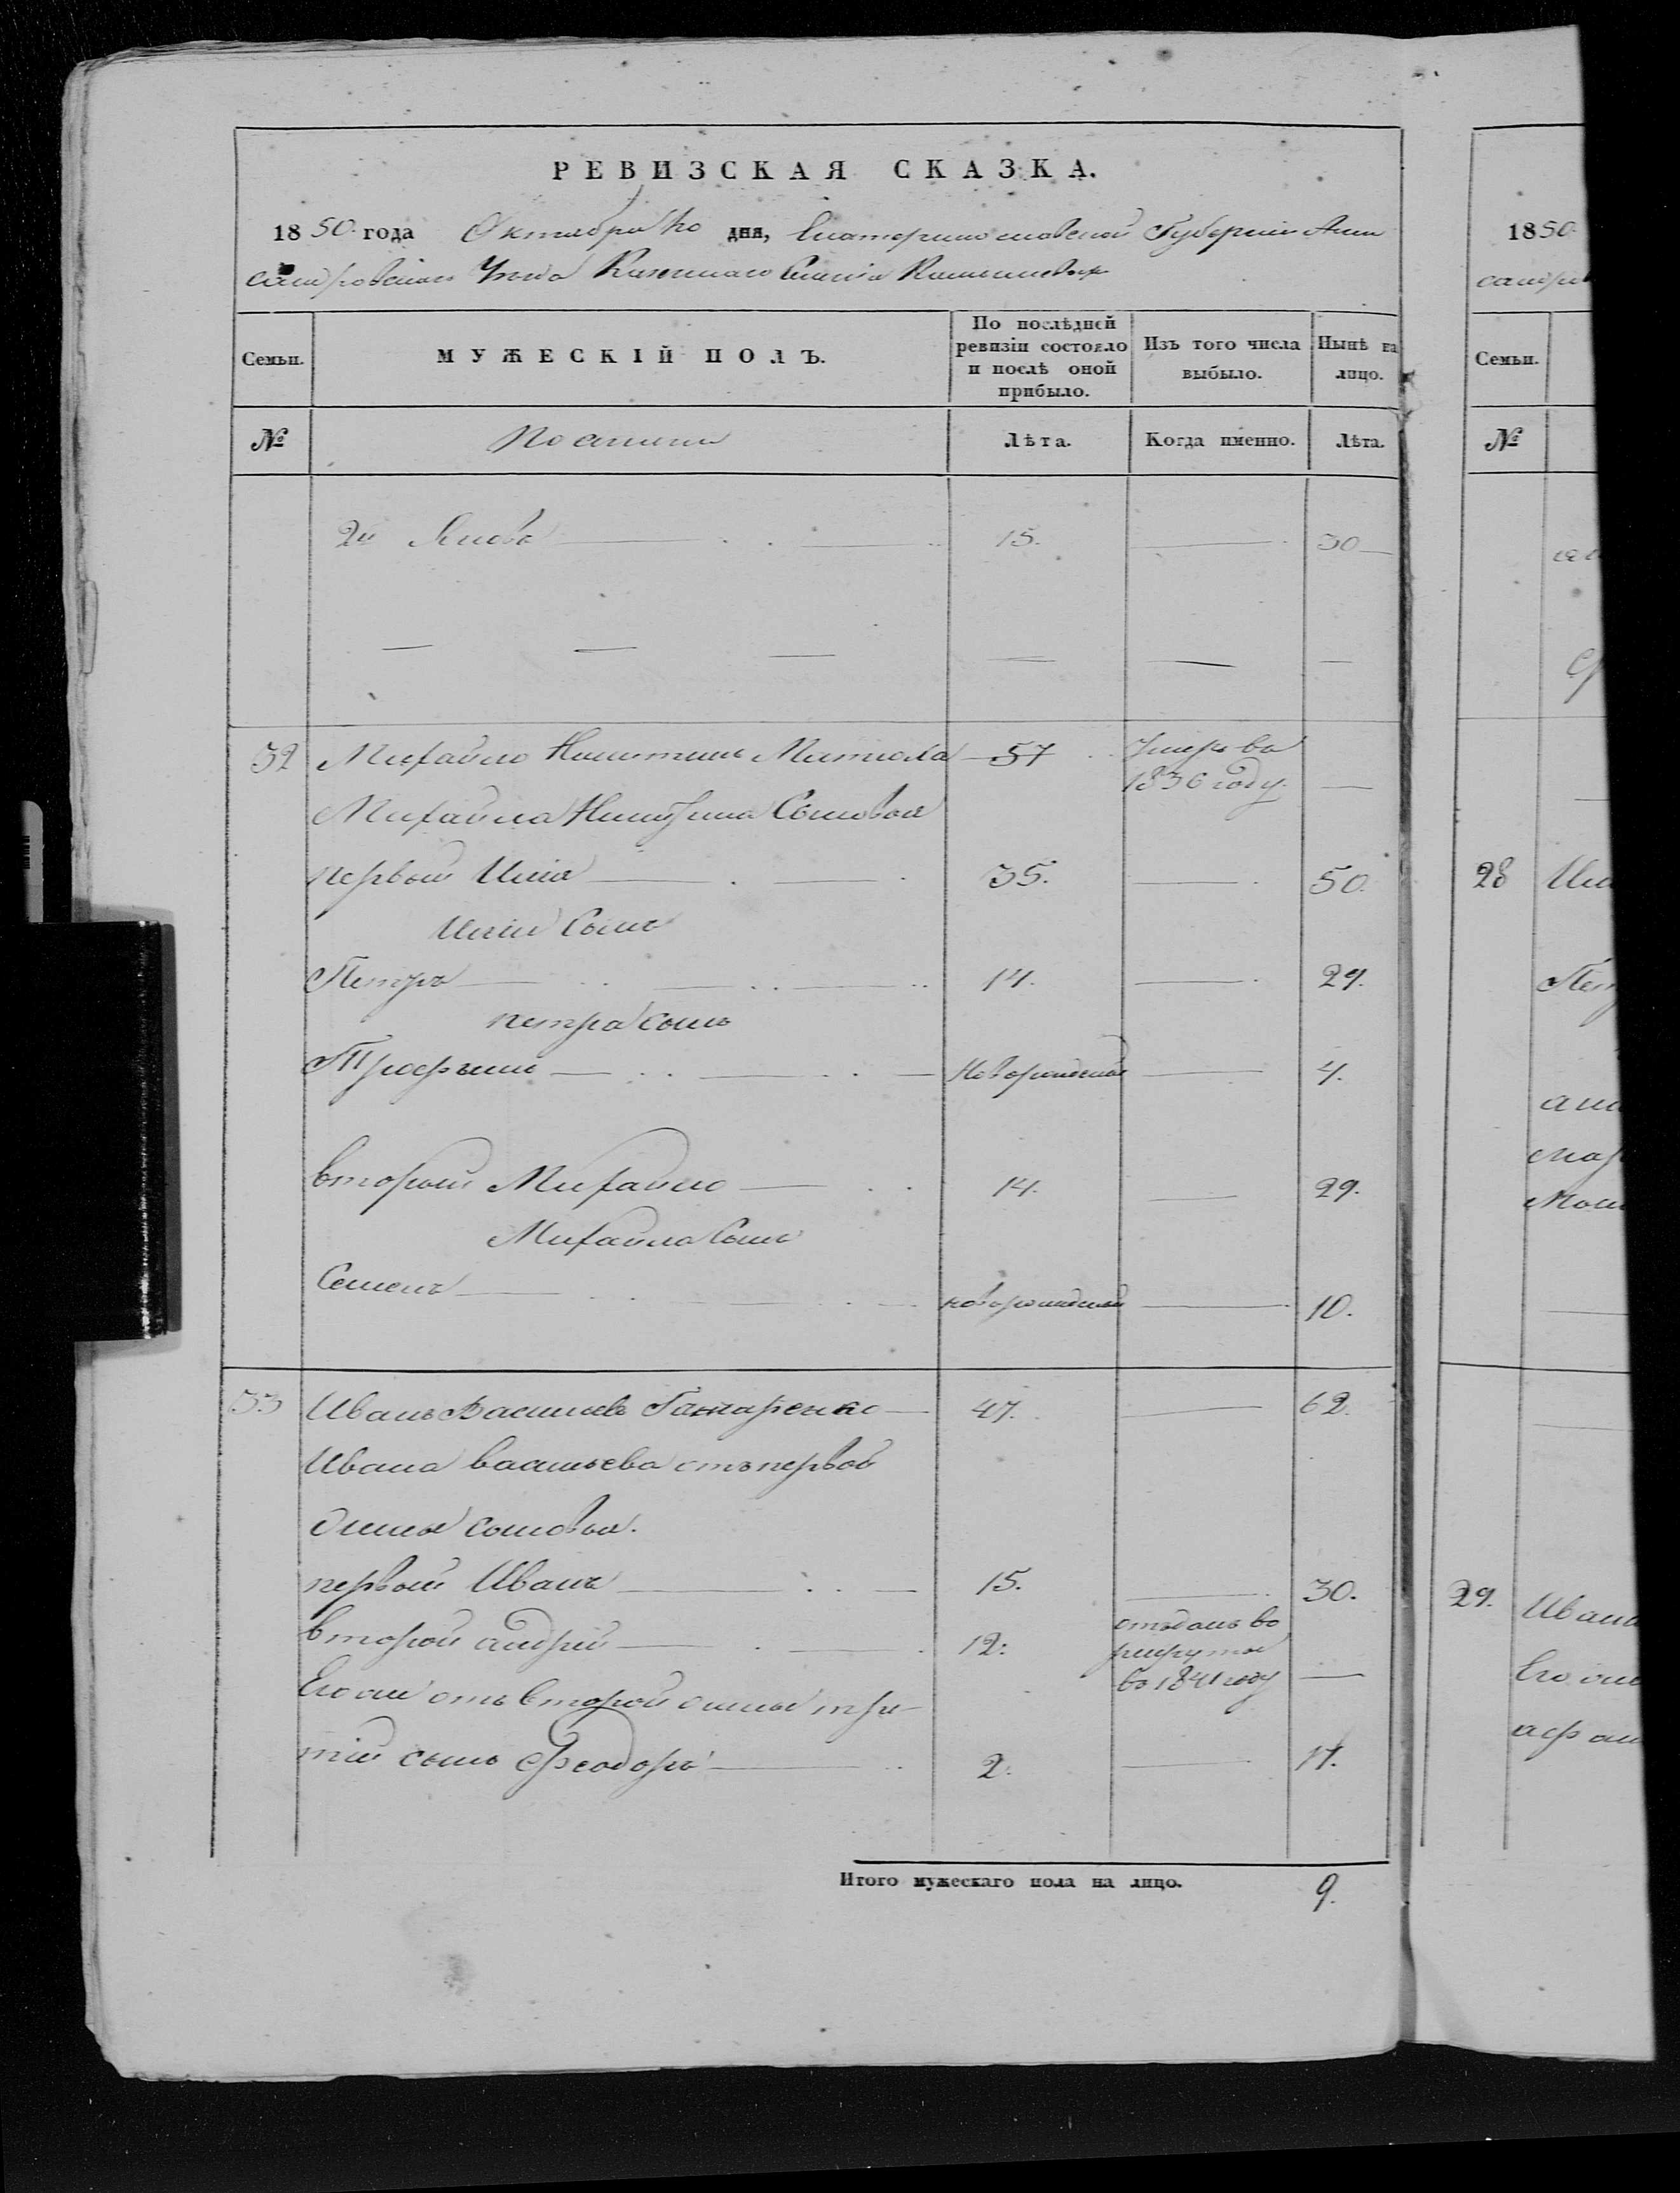 РЕВИЗСКАЯ СКАЗКА.
1850 года Октября дня, Екатеринославской Губерніи Алек
сандровскаго Уѣзда Казеннаго Селенія
Семьи. МУЖЕСКІЙ ПОЛЪ. По послѣдней ревизіи состояло и послѣ оной прибыло. Изъ того числа выбыло. Нынѣ на лицо.
№ Лѣта. Когда именно. Лѣта.
2й Яковъ 15. 30
32 Михайло Никитинъ Матюха 57 Умеръ въ 1836 году.
Михайла Никитина Сыновья
первый Илія 35. 50.
Иліи Сынъ
Петръ 14. 29.
Петра Сынъ
Трофимъ Новорожденный 4.
второй Михайло 14. 29.
Михайла Сынъ
Семенъ новорожденный 10.
33 Иванъ Васильевъ Гончаренко 47. 62.
Ивана васильева отъ первой
жены сыновья.
первый Иванъ 15. 30.
второй андрей 12. отъданъ во рекруты во 1841 году
Его же отъ второй жены тре-
тій сынъ Феодоръ 2. 17.
Итого мужескаго пола на лицо. 9.
1850
Семьи.
№
28
29.